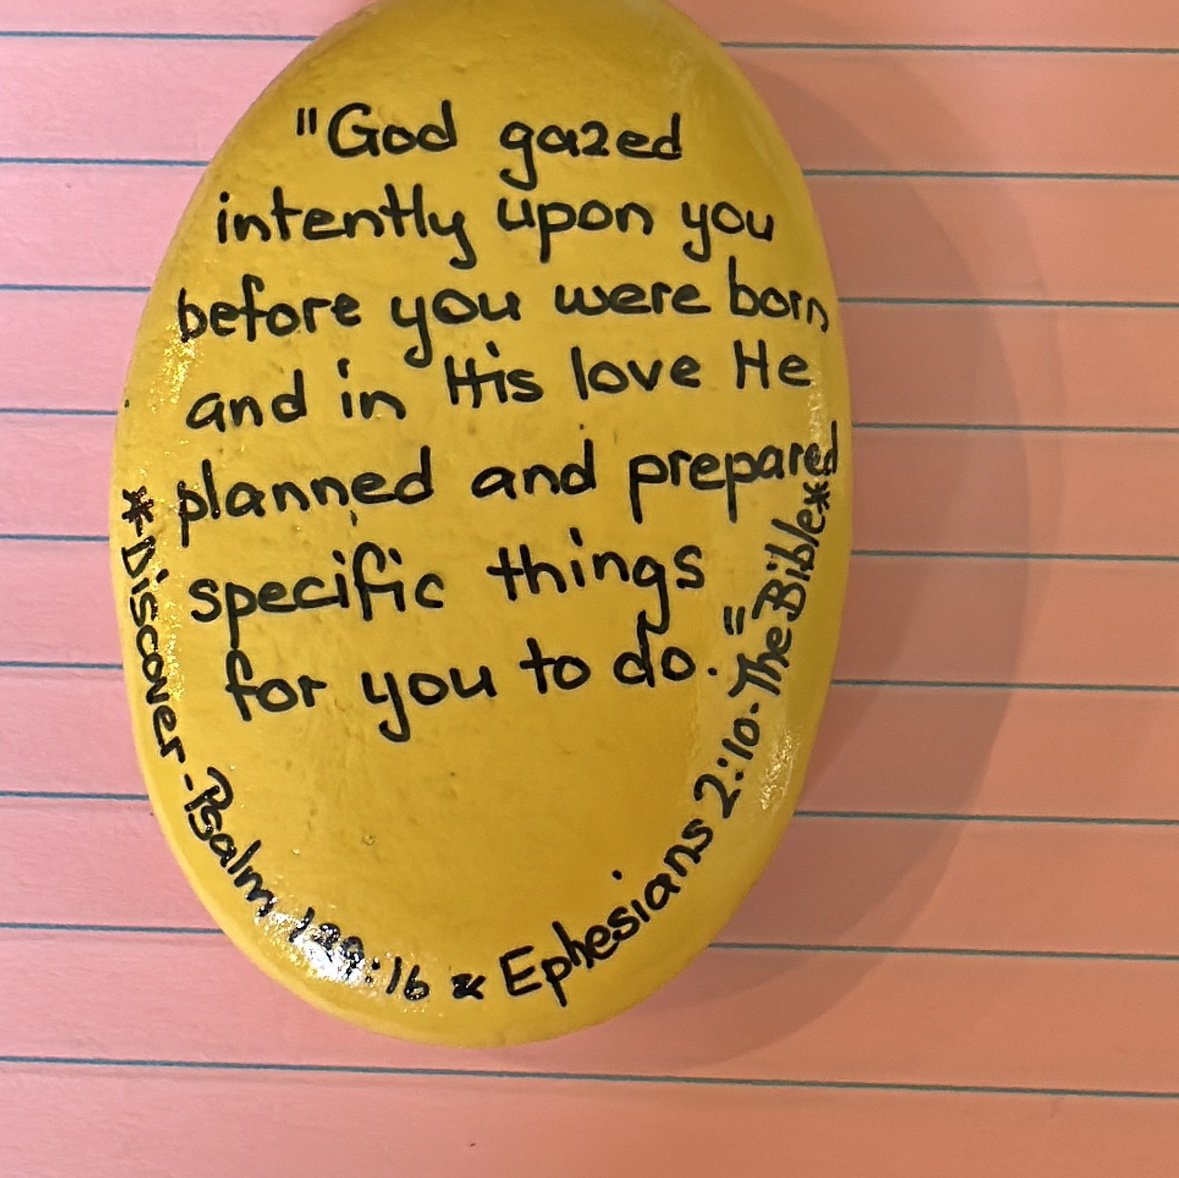 "God gazed
intently upon you
before you were born
and in His love He
planned and prepared
specific things
for you to do."
*Discover-Psalm 139:16 & Ephesians 2:10-The Bible*